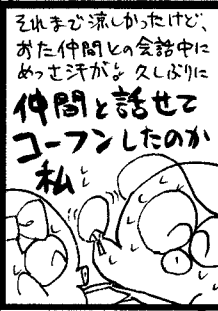 それまで涼しかったけど、
おた仲間との会話中に
めっさ汗が。久しぶりに
仲間と話せて
コーフンしたのか
私